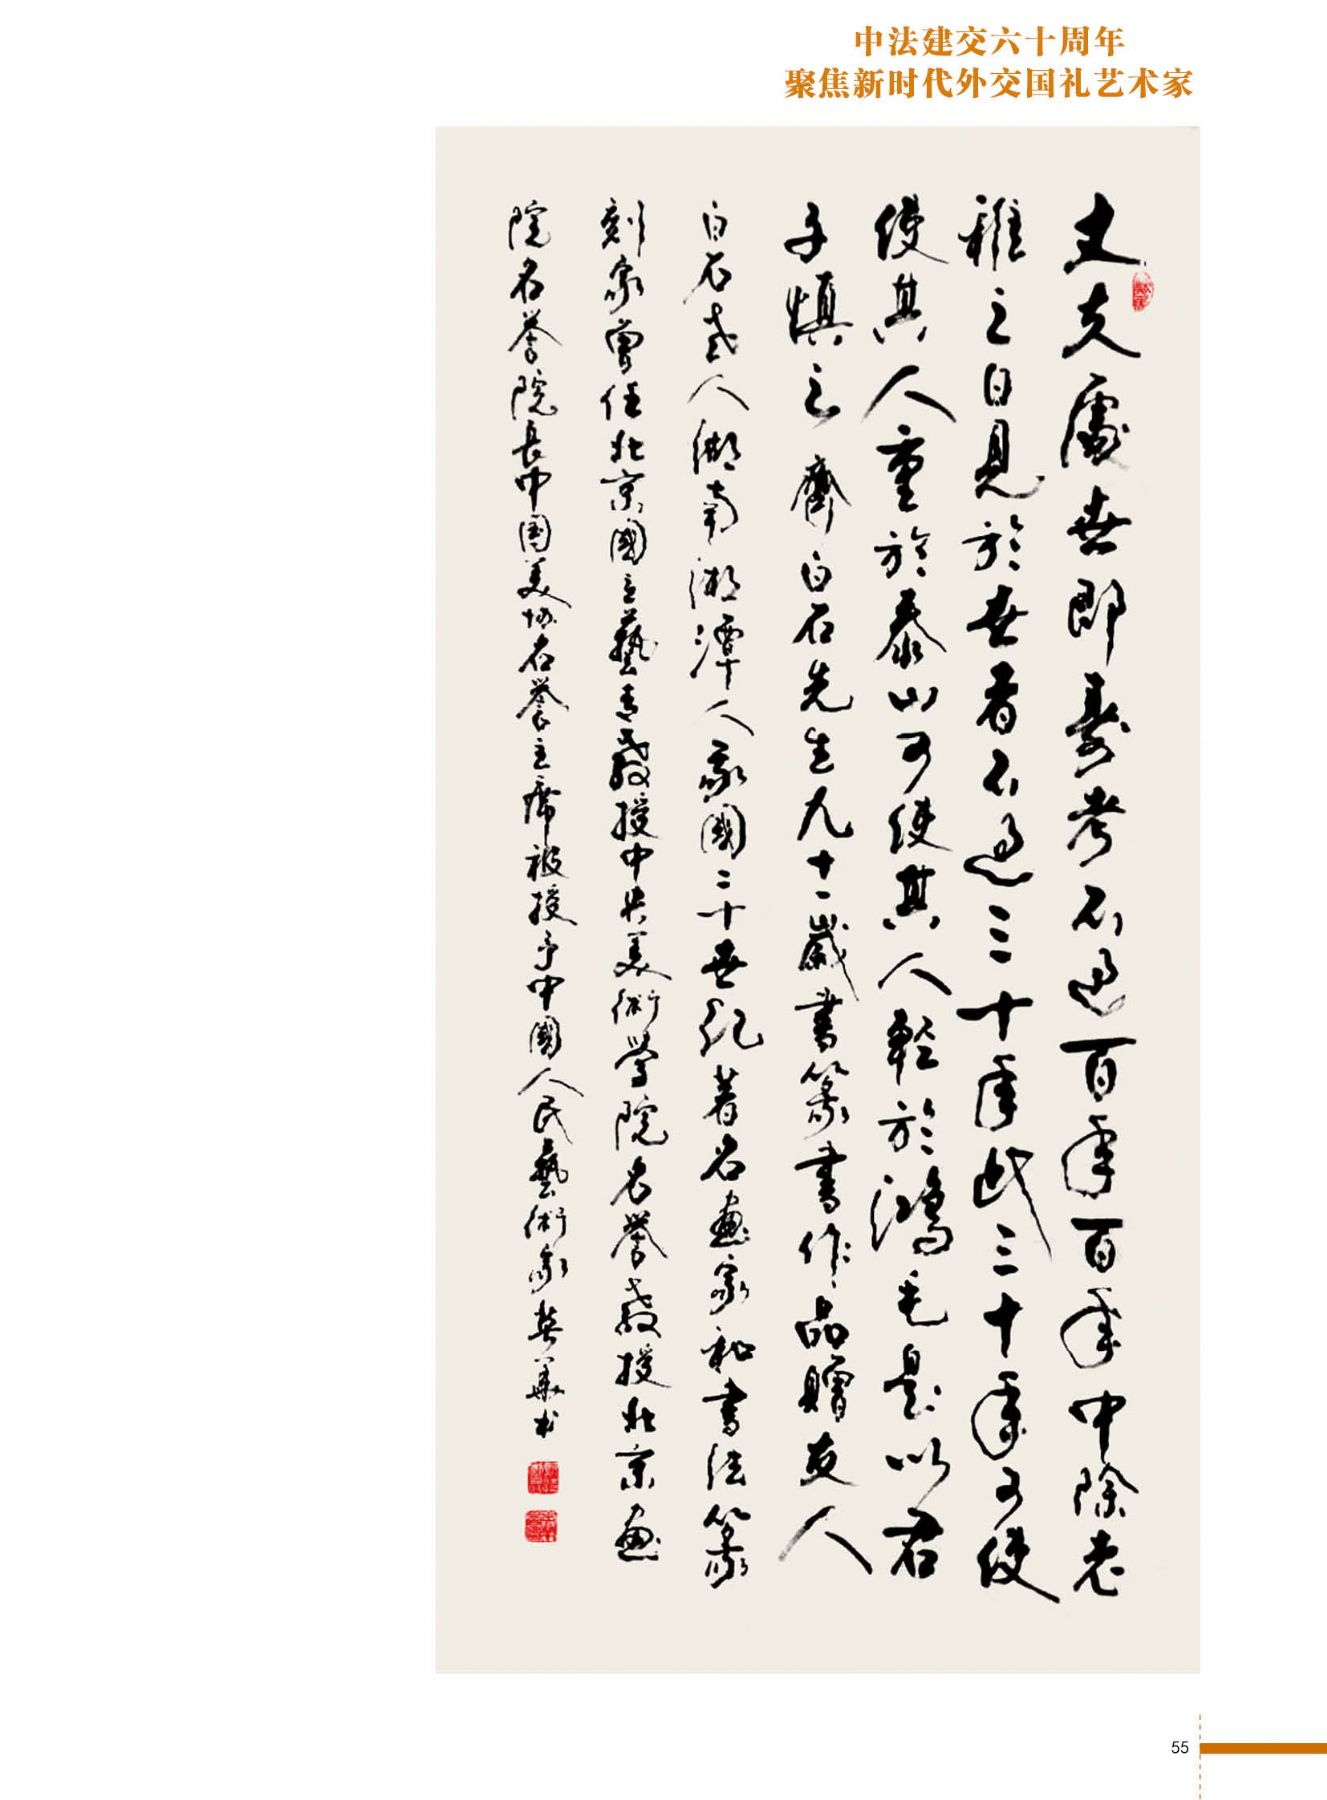 中法建交六十周年
聚焦新时代外交国礼艺术家
丈夫處世即壽考不過百年百年中除老
稚之日見於世者不過三十年此三十年可使
使其人重於泰山可使其人輕於鴻毛是以君
子慎之 齊白石先生九十一歲書篆書作品贈友人
白石老人湖南湘潭人我國二十世紀著名画家和書法篆
刻家曾任北京國立藝專教授中央美術學院名譽教授北京画
院名誉院長中国美协名誉主席被授予中國人民藝術家 英華书
55